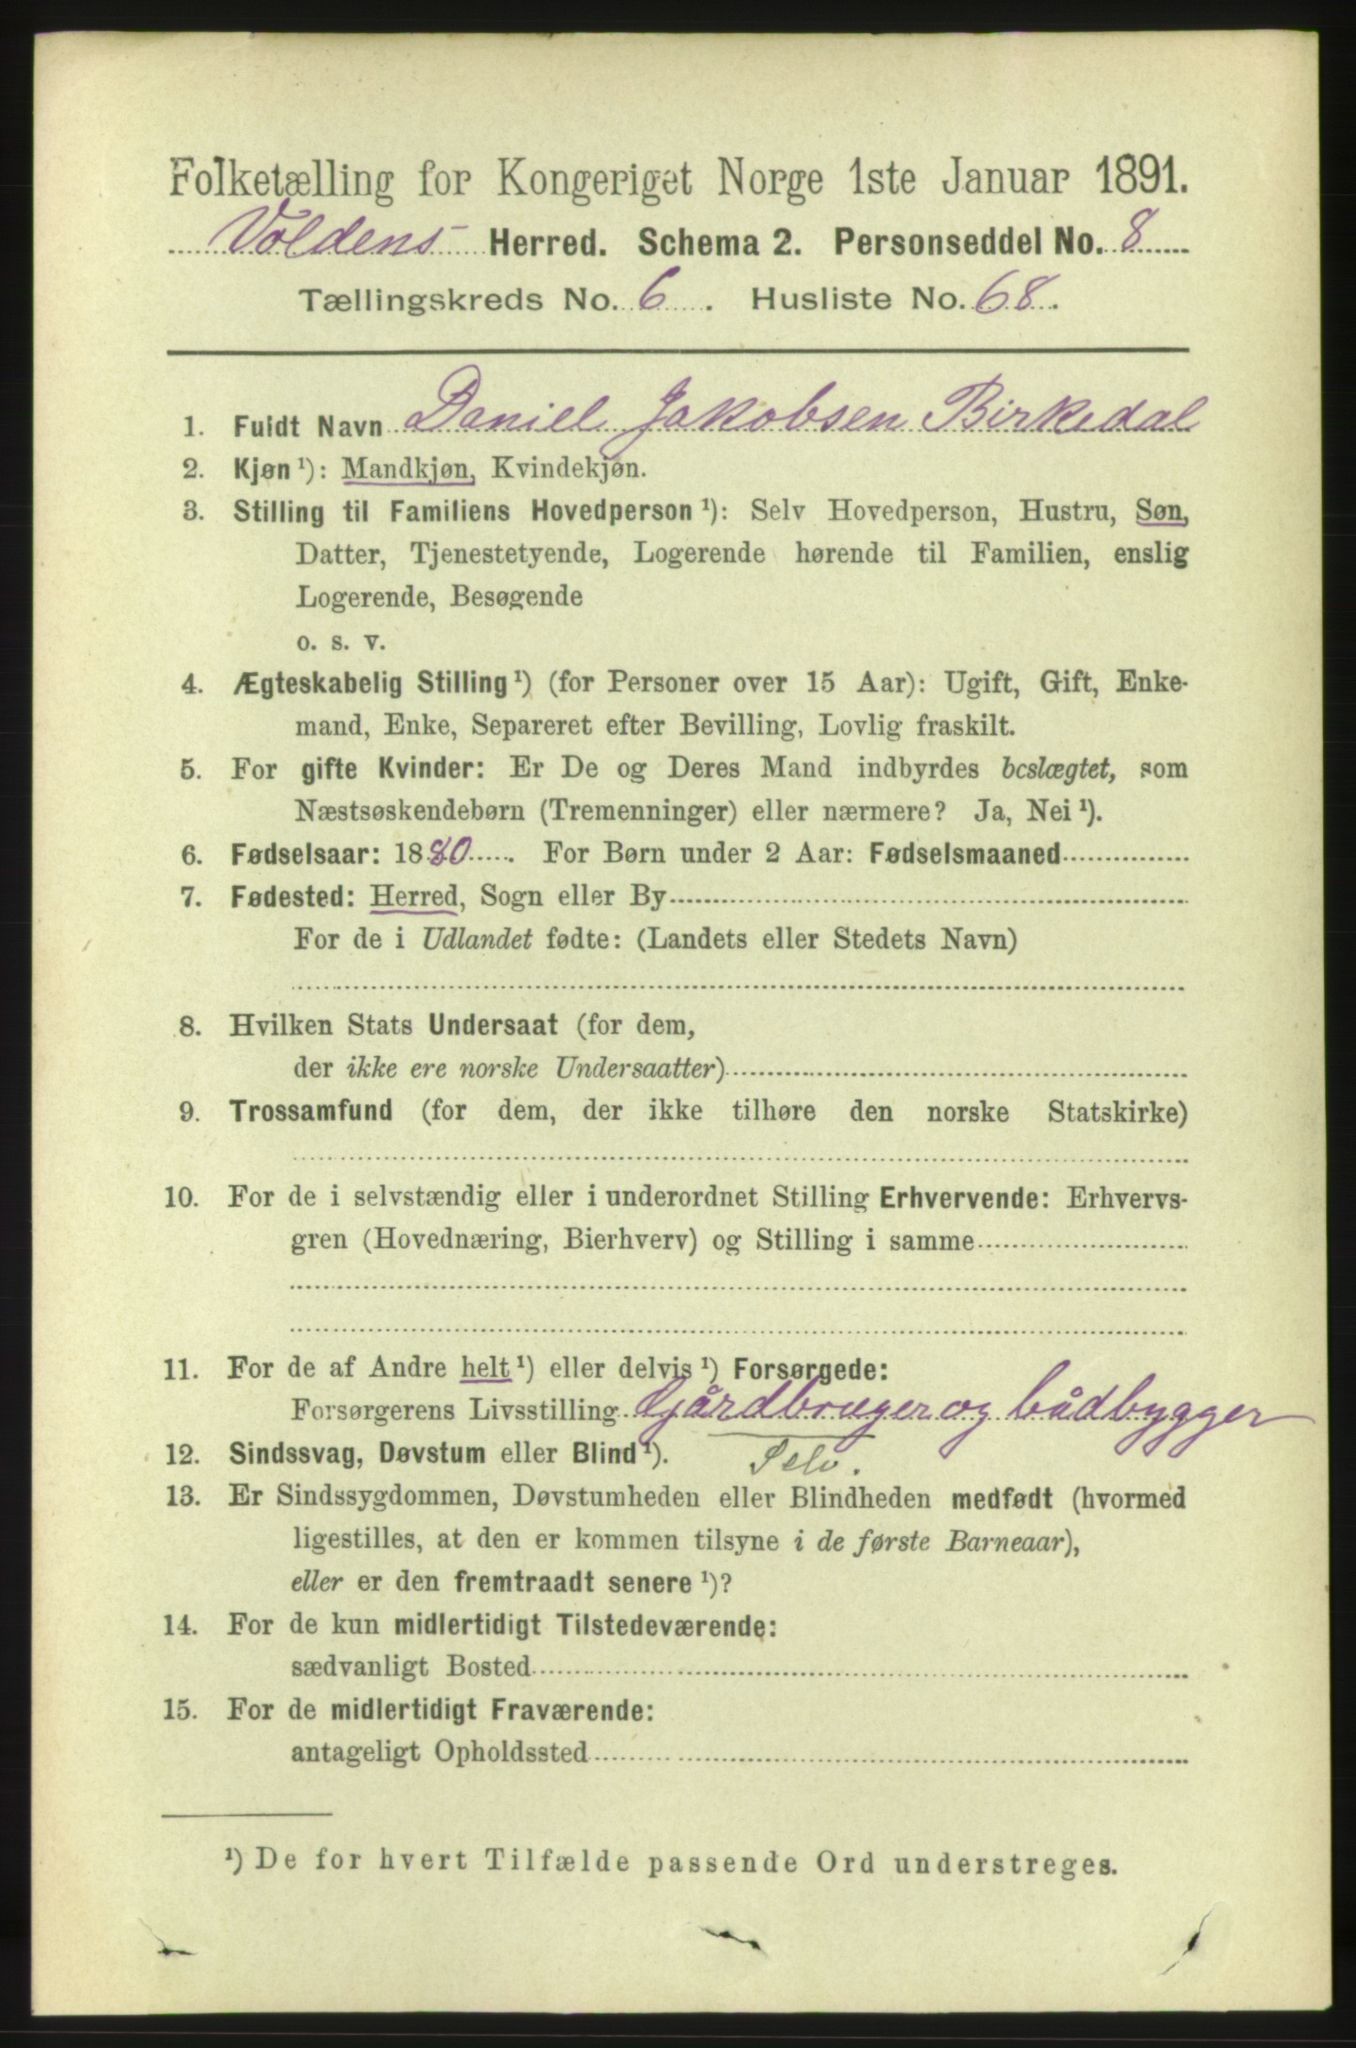 Folketælling for Kongeriget Norge 1ste Januar 1891.
Voldens Herred. Schema 2. Personseddel No. 8
Tællingskreds No. 6. Husliste No. 68.
1. Fuldt Navn Daniel Jakobsen Birkedal
2. Kjøn ¹): Mandkjøn, Kvindekjøn.
3. Stilling til Familiens Hovedperson ¹): Selv Hovedperson, Hustru, Søn,
Datter, Tjenestetyende, Logerende hørende til Familien, enslig
Logerende, Besøgende
o. s. v.
4. Ægteskabelig Stilling ¹) (for Personer over 15 Aar): Ugift, Gift, Enke-
mand, Enke, Separeret efter Bevilling, Lovlig fraskilt.
5. For gifte Kvinder: Er De og Deres Mand indbyrdes beslægtet, som
Næstsøskendebørn (Tremenninger) eller nærmere? Ja, Nei ¹).
6. Fødselsaar: 1880. For Børn under 2 Aar: Fødselsmaaned
7. Fødested: Herred, Sogn eller By
For de i Udlandet fødte: (Landets eller Stedets Navn)
8. Hvilken Stats Undersaat (for dem,
der ikke ere norske Undersaatter)
9. Trossamfund (for dem, der ikke tilhøre den norske Statskirke)
10. For de i selvstændig eller i underordnet Stilling Erhvervende: Erhvervs-
gren (Hovednæring, Bierhverv) og Stilling i samme
11. For de af Andre helt ¹) eller delvis ¹) Forsørgede:
Forsørgerens Livsstilling Gjårdbruger og bådbygger
12. Sindssvag, Døvstum eller Blind ¹). Selv.
13. Er Sindssygdommen, Døvstumheden eller Blindheden medfødt (hvormed
ligestilles, at den er kommen tilsyne i de første Barneaar),
eller er den fremtraadt senere ¹)?
14. For de kun midlertidigt Tilstedeværende:
sædvanligt Bosted
15. For de midlertidigt Fraværende:
antageligt Opholdssted
¹) De for hvert Tilfælde passende Ord understreges.